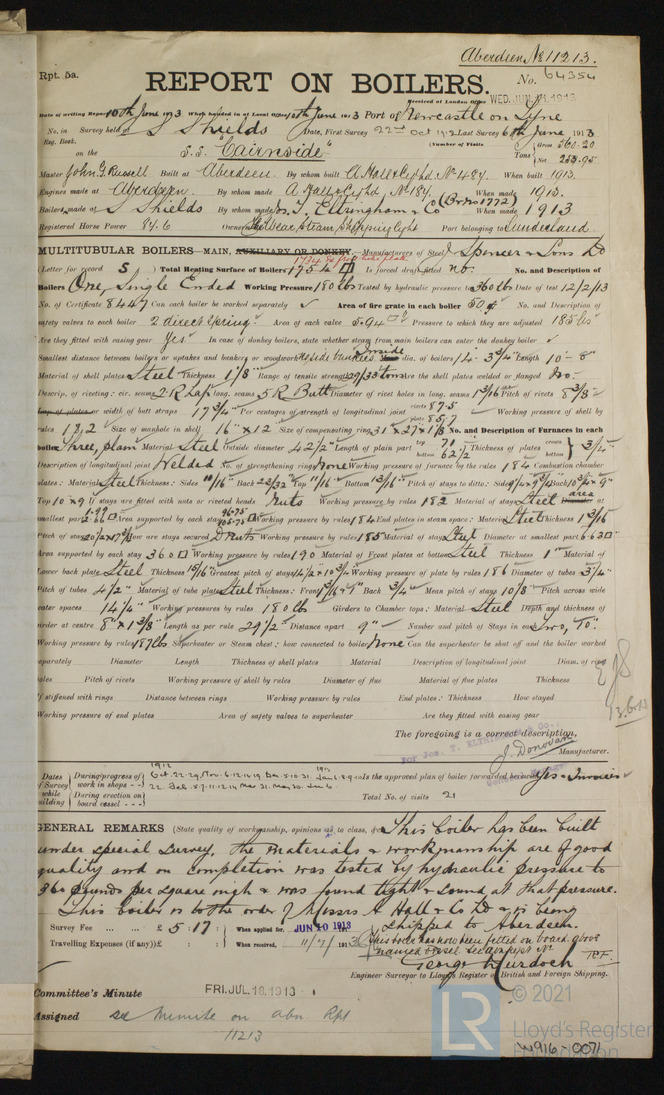 Aberdeen No 11213.
Rpt. 5a.
REPORT ON BOILERS.
No. 64354
Received at London Office WED. JUN. 1913
Date of writing Report 10th June 1913 When handed in at Local Office 10th June 1913 Port of Newcastle on Tyne
No. in Reg. Book. Survey held at S Shields Date, First Survey 22nd Oct 1912 Last Survey 6th June 1913
on the S.S. "Cairnside" (Number of Visits Tons Gross 560.20 Net 233.95
Master John G Russell Built at Aberdeen By whom built A. Hall & Co Ltd No 487. When built 1913.
Engines made at Aberdeen. By whom made A Hall & Co Ltd No 487. When made 1913.
Boilers made at S Shields By whom made J. T. Eltringham & Co (Br No 1772) When made 1913
Registered Horse Power Owners Port belonging to Sunderland
MULTITUBULAR BOILERS - MAIN, AUXILIARY OR DONKEY. - Manufacturers of Steel J Spencer & Sons Ld
(Letter for record S) Total Heating Surface of Boilers 1754 Is forced draft fitted no. No. and Description of
Boilers One, Single Ended Working Pressure 180 lbs Tested by hydraulic pressure to 360 lbs Date of test 12/2/13
No. of Certificate 8447 Can each boiler be worked separately Area of fire grate in each boiler 50 No. and Description of
safety valves to each boiler 2 direct Spring. Area of each valve 5.94 Pressure to which they are adjusted 185 lbs
Are they fitted with easing gear Yes In case of donkey boilers, state whether steam from main boilers can enter the donkey boiler
Smallest distance between boilers or uptakes and bunkers or woodwork Inside dia. of boilers 14'-3 3/4" Length 10'-8"
Material of shell plates Steel Thickness 1 1/8" Range of tensile strength 29/33 tons Are the shell plates welded or flanged No.
Descrip. of riveting: cir. seams 2 R Lap long. seams 5 R Butt Diameter of rivet holes in long. seams 1 3/16" Pitch of rivets 8 3/8
Lap of plates or width of butt straps 17 3/4" Per centages of strength of longitudinal joint rivets 87.5 plate 85.7 Working pressure of shell by
rules 182 Size of manhole in shell 16" x 12" Size of compensating ring 31 x 27 x 1 1/8 No. and Description of Furnaces in each
boiler Three, plain Material Steel Outside diameter 42 1/2" Length of plain part top 71 bottom 62 1/2 Thickness of plates crown bottom 3/4"
Description of longitudinal joint Welded No. of strengthening rings None Working pressure of furnace by the rules 184 Combustion chamber
plates: Material Steel Thickness: Sides 11/16" Back 23/32" Top 11/16" Bottom 13/16" Pitch of stays to ditto: Sides Back 10 3/4 x 9"
Top 10 x 9 1/2 If stays are fitted with nuts or riveted heads Nuts Working pressure by rules 182 Material of stays Steel area at
smallest part Area supported by each stay Working pressure by rules 184 End plates in steam space: Material Steel Thickness 1 3/16
Pitch of stays How are stays secured D Nuts Working pressure by rules 185 Material of stays Steel Diameter at smallest part 6.63
Area supported by each stay 360 Working pressure by rules 190 Material of Front plates at bottom Steel Thickness 1" Material of
Lower back plate Steel Thickness 15/16" Greatest pitch of stays 14 1/2 x 10 3/4 Working pressure of plate by rules 186 Diameter of tubes 3 1/4"
Pitch of tubes 4 1/2" Material of tube plates Steel Thickness: Front Back 3/4" Mean pitch of stays 10 1/8" Pitch across wide
water spaces 14 1/4" Working pressures by rules 180 lb Girders to Chamber tops: Material Steel Depth and thickness of
girder at centre 8" x 1 3/8" Length as per rule 29 1/2" Distance apart 9" Number and pitch of Stays in each Two, 10".
Working pressure by rules 187 lbs Superheater or Steam chest: how connected to boiler None Can the superheater be shut off and the boiler worked
separately Diameter Length Thickness of shell plates Material Description of longitudinal joint Diam. of rivet
holes Pitch of rivets Working pressure of shell by rules Diameter of flue Material of flue plates Thickness
If stiffened with rings Distance between rings Working pressure by rules End plates: Thickness How stayed
Working pressure of end plates Area of safety valves to superheater Are they fitted with easing gear
The foregoing is a correct description,
J. Donovan Manufacturer.
Dates of Survey while building During progress of work in shops - - 1912 Oct. 22. 29, Nov. 6. 12. 14. 19 Dec. 5. 10. 31. 1913 Is the approved plan of boiler forwarded herewith Yes + Invoice
During erection on board vessel - - - Total No. of visits 21
GENERAL REMARKS (State quality of workmanship, opinions as to class, &c. This boiler has been built
under special survey, the materials & workmanship are of good
quality and on completion was tested by hydraulic pressure to
360 pounds per square inch & was found tight & sound at that pressure.
This boiler is to the order of Messrs A Hall & Co Ld & is being
shipped to Aberdeen.
Survey Fee ... ... £ 5 . 17 : When applied for, JUN 10 1913
This boiler has now been fitted on board above
Travelling Expenses (if any) £ : : When received, 11/7/1913
named vessel. See Abn rept No
George Murdoch
Engineer Surveyor to Lloyd's Register of British and Foreign Shipping.
Committee's Minute FRI. JUL. 18. 1913
Assigned see minute on abn. Rpt
11213
LR
© 2021
Lloyd's Register
Foundation
W916-0071